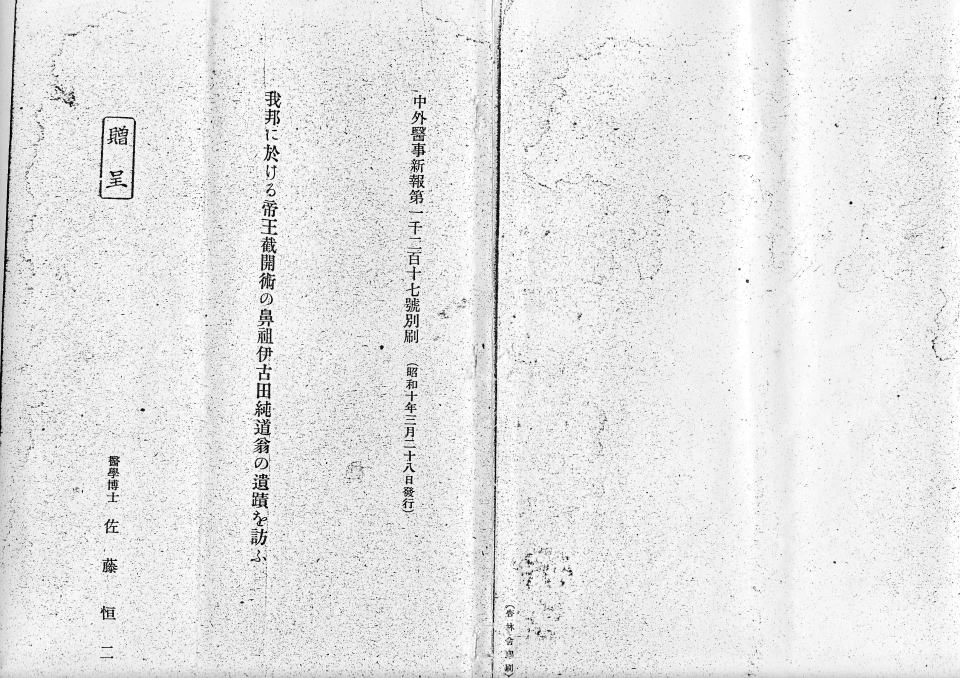 中外醫事新報第一千二百十七號別刷 (昭和十年三月二十八日發行)
我邦に於ける帝王截開術の鼻祖伊古田純道翁の遺蹟を訪ふ
醫學博士 佐藤恒二
贈呈
(杏林舍印刷)